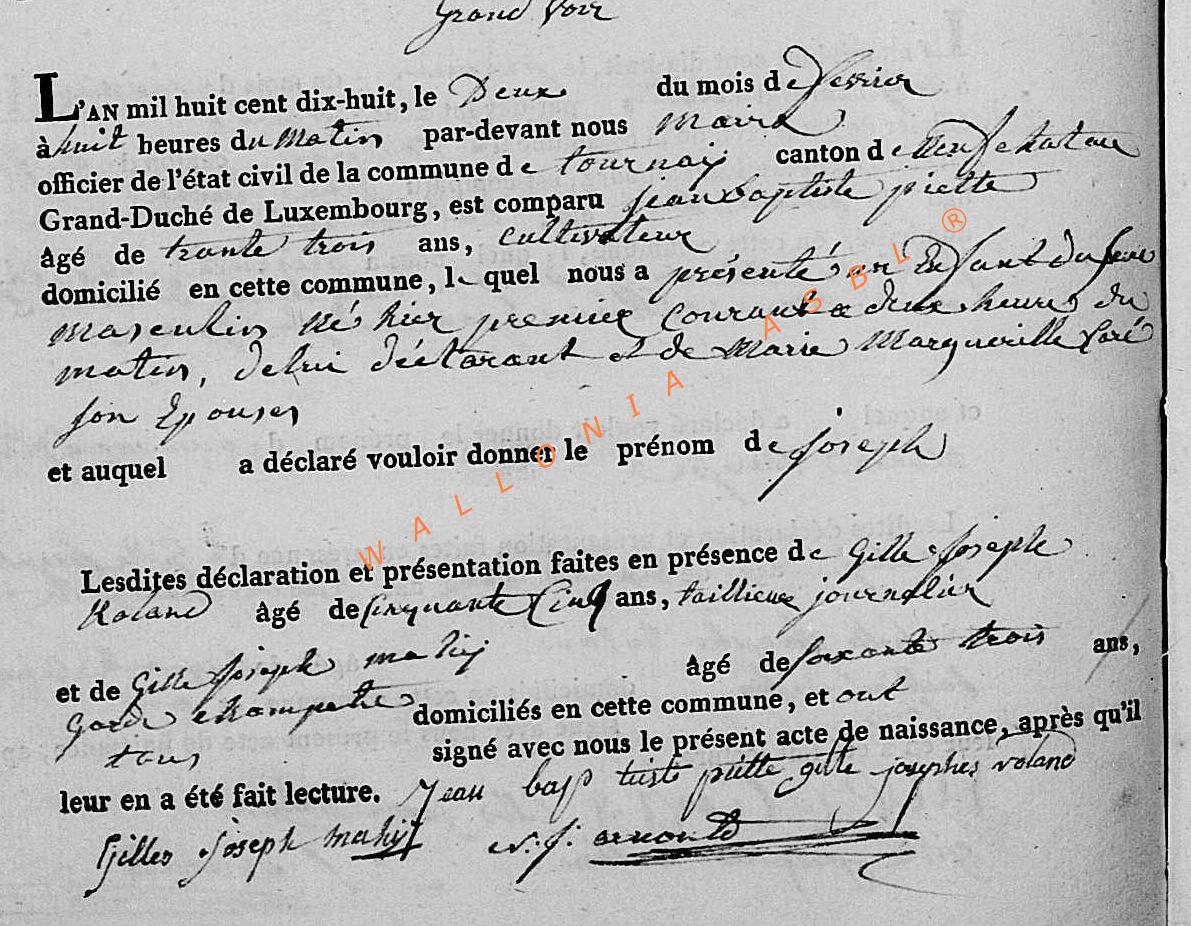 Grand Voir
L'AN mil huit cent dix-huit, le Deux du mois de fevrier
à huit heures du Matin par-devant nous maire
officier de l'état civil de la commune de tournay canton de Neufchateau
Grand-Duché de Luxembourg, est comparu jean baptiste piette
âgé de trante trois ans, cultivateur
domicilié en cette commune, le quel nous a présenté un Enfant du sexe
masculin Né hier premier courant a deux heures du
matin, de lui déclarant et de Marie Margueritte
son Epouses
et auquel a déclaré vouloir donner le prénom de joseph
Lesdites déclaration et présentation faites en présence de Gille joseph
Roland âgé de cinquante cinq ans, taillieur journalier
et de Gille joseph mahij âgé de soixante trois ans,
Garde champetre domiciliés en cette commune, et ont
tous signé avec nous le présent acte de naissance, après qu'il
leur en a été fait lecture. jean bap tiste piette gille josephes roland
Gilles joseph mahij arnould
WALLONIA ASBL ®